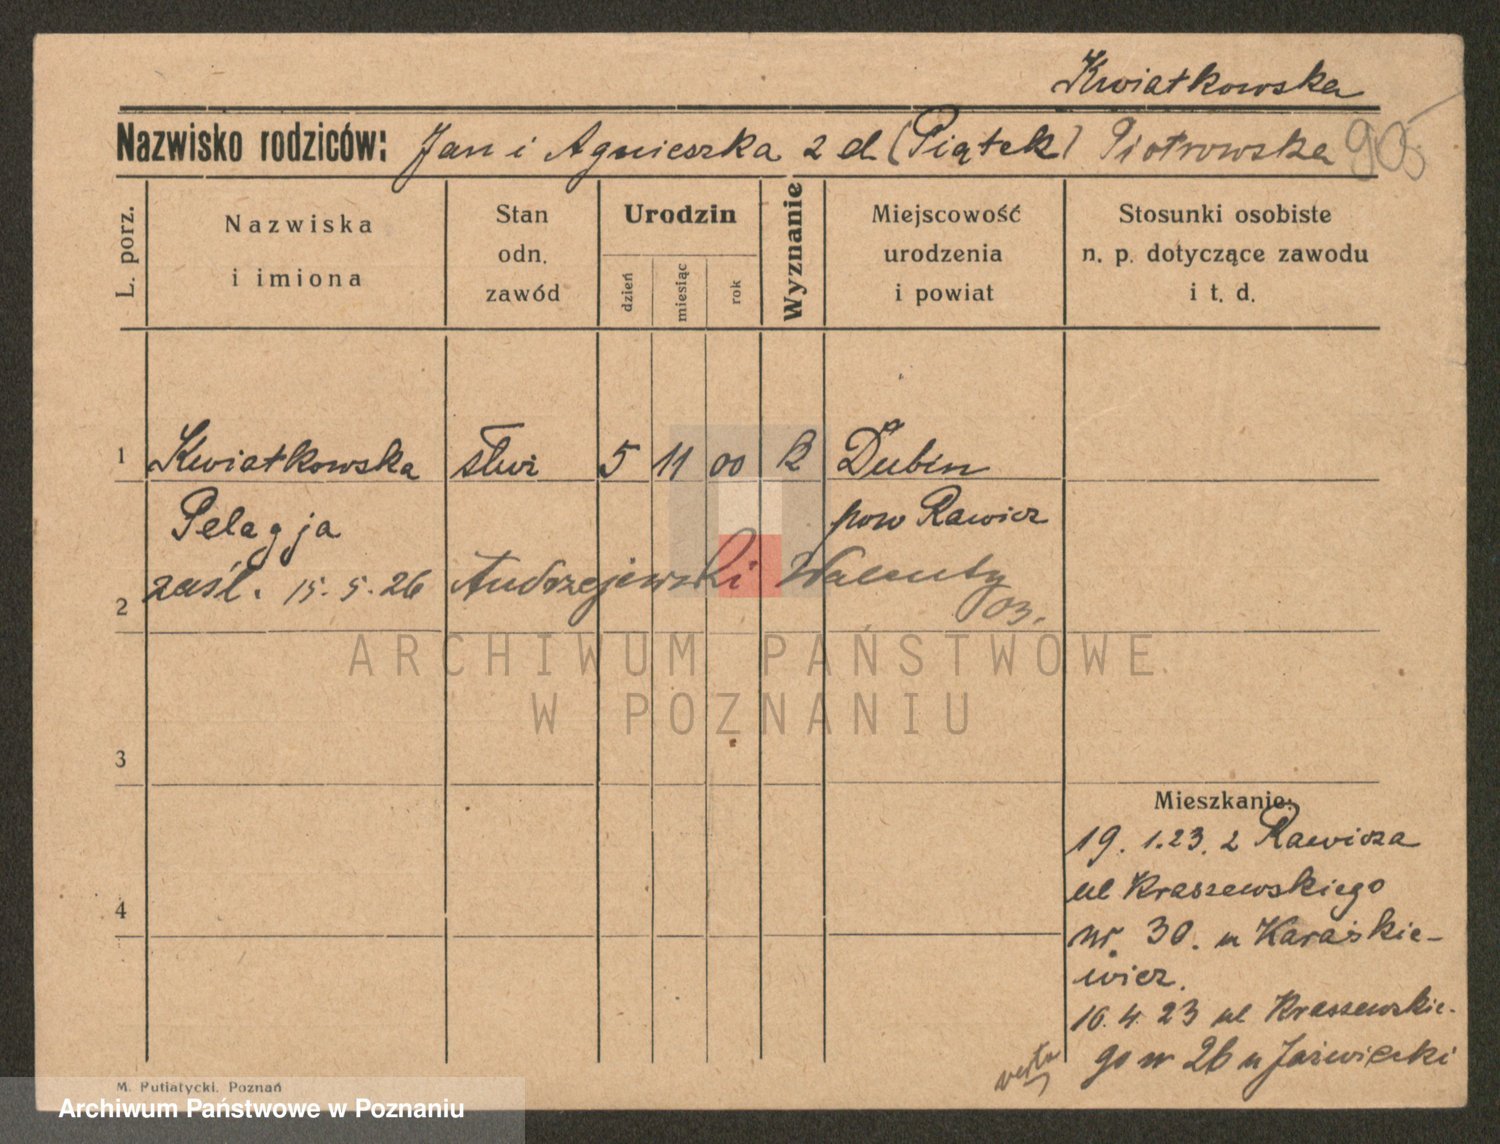 Kwiatkowska
Nazwisko rodziców: Jan i Agnieszka 2 d (Piątek) Piotrowska 905
L. porz.
Nazwiska i imiona
Stan odn. zawód
Urodzin
dzień
miesiąc
rok
Wyznanie
Miejscowość urodzenia i powiat
Stosunki osobiste n. p. dotyczące zawodu i t. d.
1 Kwiatkowska służ 5 11 00 R Dubin
Pelagja pow Rawicz
2 zaśl. 15.5.26 Andrzejewski Walenty
03.
ARCHIWUM PAŃSTWOWE
W POZNANIU
3
4
Mieszkanie:
19. 1.23. z Rawicza
ul Kraszewskiego
nr. 30. u Karaśkie-
wicz.
16.4.23 ul Kraszewskie-
go nr 26 u Jaźwiecki
verte
M. Putiatycki, Poznań
Archiwum Państwowe w Poznaniu